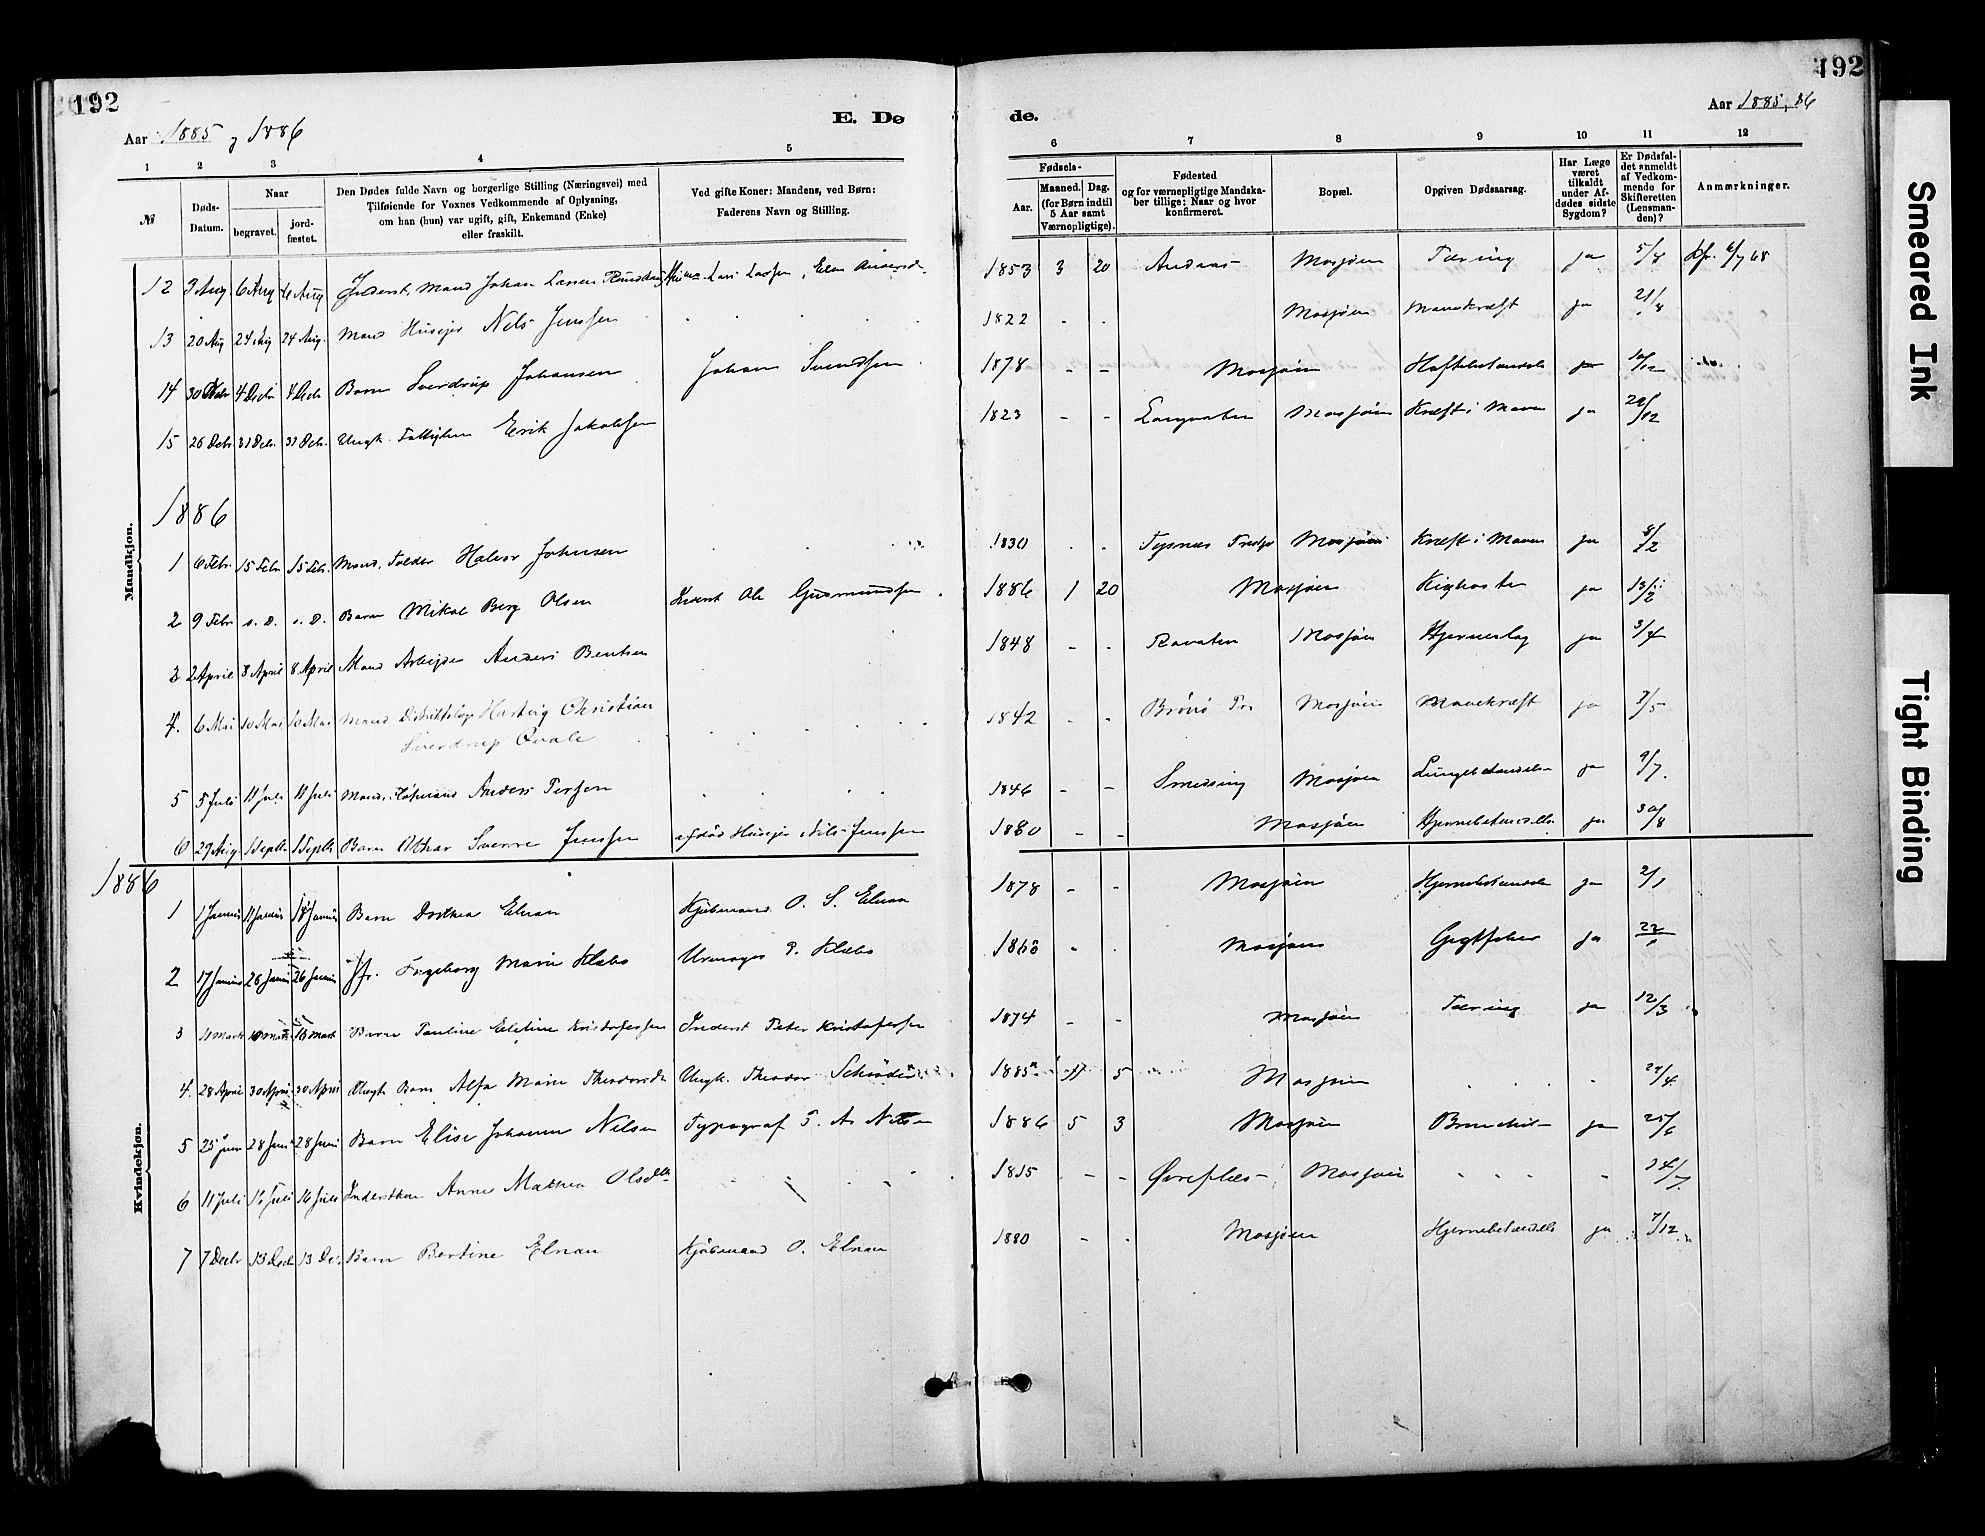 192
192
Aar 1885 og 1886
E. Dø
de.
Aar 1885, 86
1 2 3 4 5
6 7 8 9 10 11 12
№
Døds-Datum.
Naar
begravet.
jord-fæstet.
Den Dødes fulde Navn og borgerlige Stilling (Næringsvei) med
Tilføiende for Voxnes Vedkommende af Oplysning,
om han (hun) var ugift, gift, Enkemand (Enke)
eller fraskilt.
Ved gifte Koner: Mandens, ved Børn:
Faderens Navn og Stilling.
Fødsels-
Aar.
Maaned. Dag.
(for Børn indtil
5 Aar samt
Værnepligtige).
Fødested
og for værnepligtige Mandska-
ber tillige: Naar og hvor
konfirmeret.
Bopæl.
Opgiven Dødsaarsag.
Har Læge
været
tilkaldt
under Af-
dødes sidste
Sygdom?
Er Dødsfal-
det anmeldt
af Vedkom-
mende for
Skifteretten
(Lensman-
den)?
Anmærkninger.
Mandkjøn.
12 3 Aug 6 Aug 6 Aug Inderst, Mand Johan Larsen 1853 3 20 Mosjøen Tæring ja 5/8
13 20 Aug 24 Aug 24 Aug. Mand Husejer Nels Jenssen 1822 - - Mosjøen Mavekræft ja 21/8
14 30 4 Decbr 4 Decbr Barn Sverdrup Johansen Johan Svendsen 1878 - - Mosjøen ja 10/12
15 26 Decbr 31 Decbr. 31 Decbr. Ungk. Erik Jakobsen 1823 - - Mosjøen Kræft i Maven ja 29/12
1886
1 6 Febr. 15 Febr 15 Febr. Mand, Halvor Johnsen 1830 - - Tysnæs Mosjøen Kræft i Maven ja 8/2
2 9 Febr s. D. s. D. Barn Mikal Berg Olsen Inderst Ole Gudmundsen 1886 1 20 Mosjøen Kighoste ja 13/2
3 2 April 8 April 8 April Mand Arbejder Anders Bentsen 1848 - - Mosjøen Hjerneslag ja 3/4
4. 6 Mai 10 Mai 10 Mai Mand Distriktslæge Hartvig Christian
Sverdrup Qvale 1842 - - Brønø Mosjøen Mavekræft ja 7/5
5 5 Juli 11 Juli 11 Juli Mand, Anders 1846 - - Mosjøen ja 9/7.
6 29 Aug 1 Septbr 1 Septbr Barn Othar Sverre Jenssen afdød Husejer Nils Jenssen 1880 - - Mosjøen Hjernebetændelse ja 30/8
Kvindekjøn.
1886
1 1 Januar 11 Januar Barn Dorthea Elnan Kjøbmand O. S. Elnan 1878 - - Mosjøen Hjernebetændelse ja 2/1
2 17 Januar 26 Januar 26 Januar Jfr. Ingeborg Marie Klæbo Urmager P. Klæbo Mosjøen Gigtfeber ja 22/1
3 11 Marts Barn Pauline Kristofersen Inderst Peter Kristofersen 1874 - - Mosjøen Tæring ja 12/3
4. 28 April 30 April 30 April Uægte Barn Alfa Marie Theodorsdtr Ungk. Theodor Schrøder 1885 11 5 Mosjøen 29/4
5 25 Juni 28 Juni 28 Juni Barn Elise Johanne Nilsen Typograf Nilsen 1886 5 3 Mosjøen Bronchit ja 25/6
6 11 Juli 16 Juli 16 Juli Inderstkone Anne Mathea Olsdtr 1815 - - Mosjøen 14/7.
7 7 Decbr 13 Decbr 13 Dec. Barn Bertine Elnan Kjøbmand O. Elnan 1880 - - Mosjøen Hjernebetændelse ja 7/12
Smeared Ink
Tight Binding